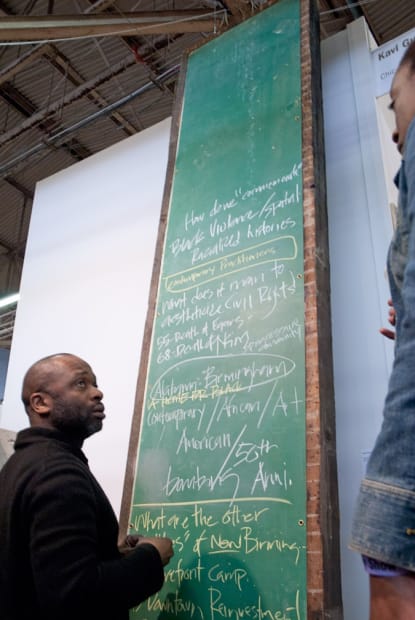 Kavi Gu
How do we "commemorate"
Black Violence/spatial
Racialized histories
Contemporary Practitioners
What does it mean to
aestheticize Civil Rights
55-Death of
68-Death of King
Alabama: Birmingham
A THEME FOR BLACK
Contemporary/African/Art
American
/50th
bombing Anni.
What are the other
of New Birming-
front Camp.
Downtown Reinvestment